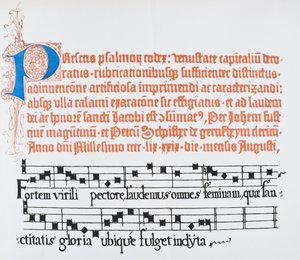 Presens psalmorum codex: venustate capitalium deco-
ratus. rubricationibusque sufficienter distinctus.
adinventione artificiosa imprimendi ac caracterizandi:
absque ulla calami exaracione sic effigiatus. et ad laudem
dei ac honorem sancti Jacobi est
Per Johem fust
civem maguntinum. et Petrum Schoifher de gernsheym clericum.
Anno dni Millesimo cccc lix xxix die mensis Augusti,
Fortem virili pectore, laudemus omnes feminam, quæ san-
ctitatis gloria ubique fulget inclyta